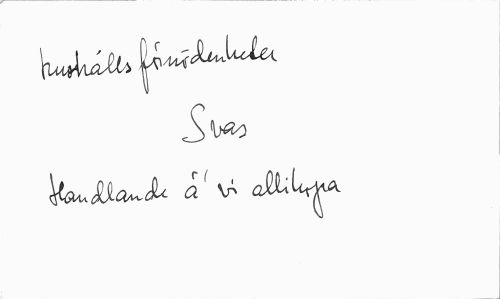 hushållsförnödenheter
Svas
Handlande å' vi